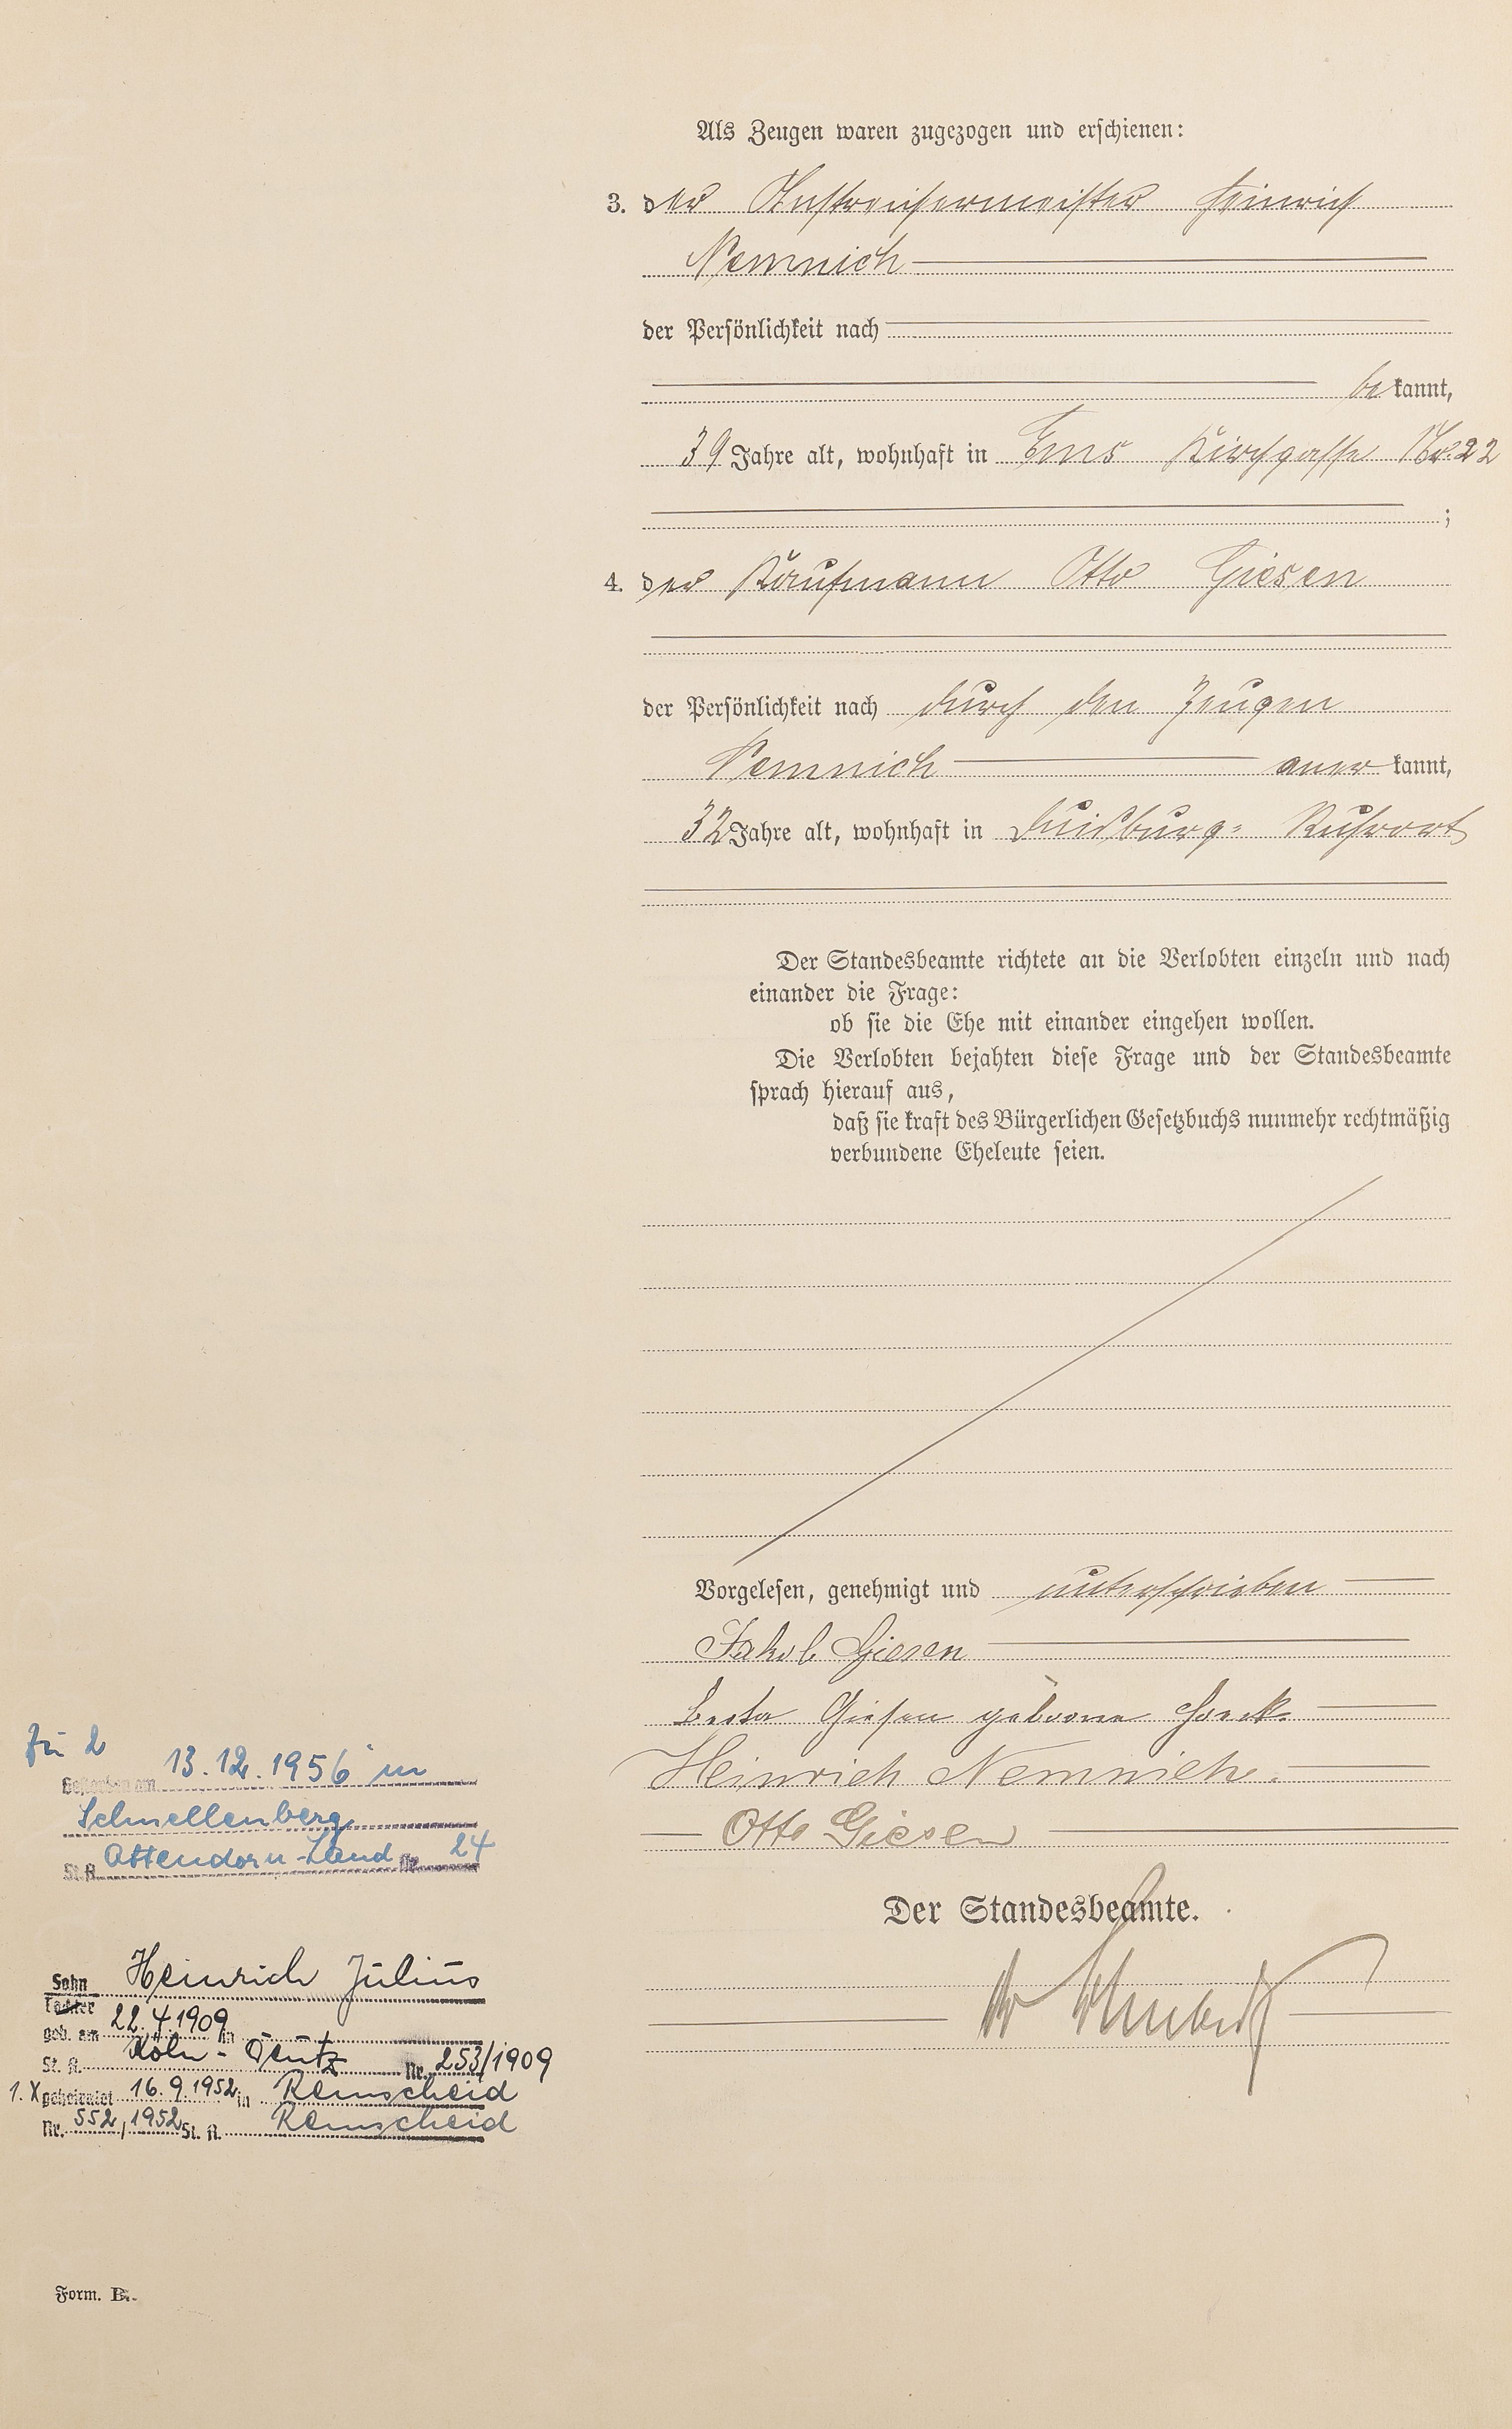 Als Zeugen waren zugezogen und erschienen:
3. der Anstreichermeister Heinrich
Nemnich
der Persönlichkeit nach
be kannt,
39 Jahre alt, wohnhaft in Ems Kirchgasse No. 22
;
4. der Kaufmann Otto Giesen
der Persönlichkeit nach durch den Zeugen
Nemnich aner kannt,
32 Jahre alt, wohnhaft in Duisburg-Ruhrort
Der Standesbeamte richtete an die Verlobten einzeln und nach
einander die Frage:
ob sie die Ehe mit einander eingehen wollen.
Die Verlobten bejahten diese Frage und der Standesbeamte
sprach hierauf aus,
daß sie kraft des Bürgerlichen Gesetzbuchs nunmehr rechtmäßig
verbundene Eheleute seien.
Vorgelesen, genehmigt und unterschrieben
Jakob Giesen
Giesen geborene
Heinrich Nemnich.
Otto Giesen
Der Standesbeamte.
Zu 2
Gestorben am 13.12.1956 in
Schnellenberg
St. A. Attendorn-Land Nr. 24
Sohn Heinrich Julius
Tochter
geb. am 22.4.1909 in
St. A. Köln-Deutz Nr. 253/1909
1. X geheiratet 16.9.1952 in Remscheid
Nr. 552/1952 St. A. Remscheid
Form. B.